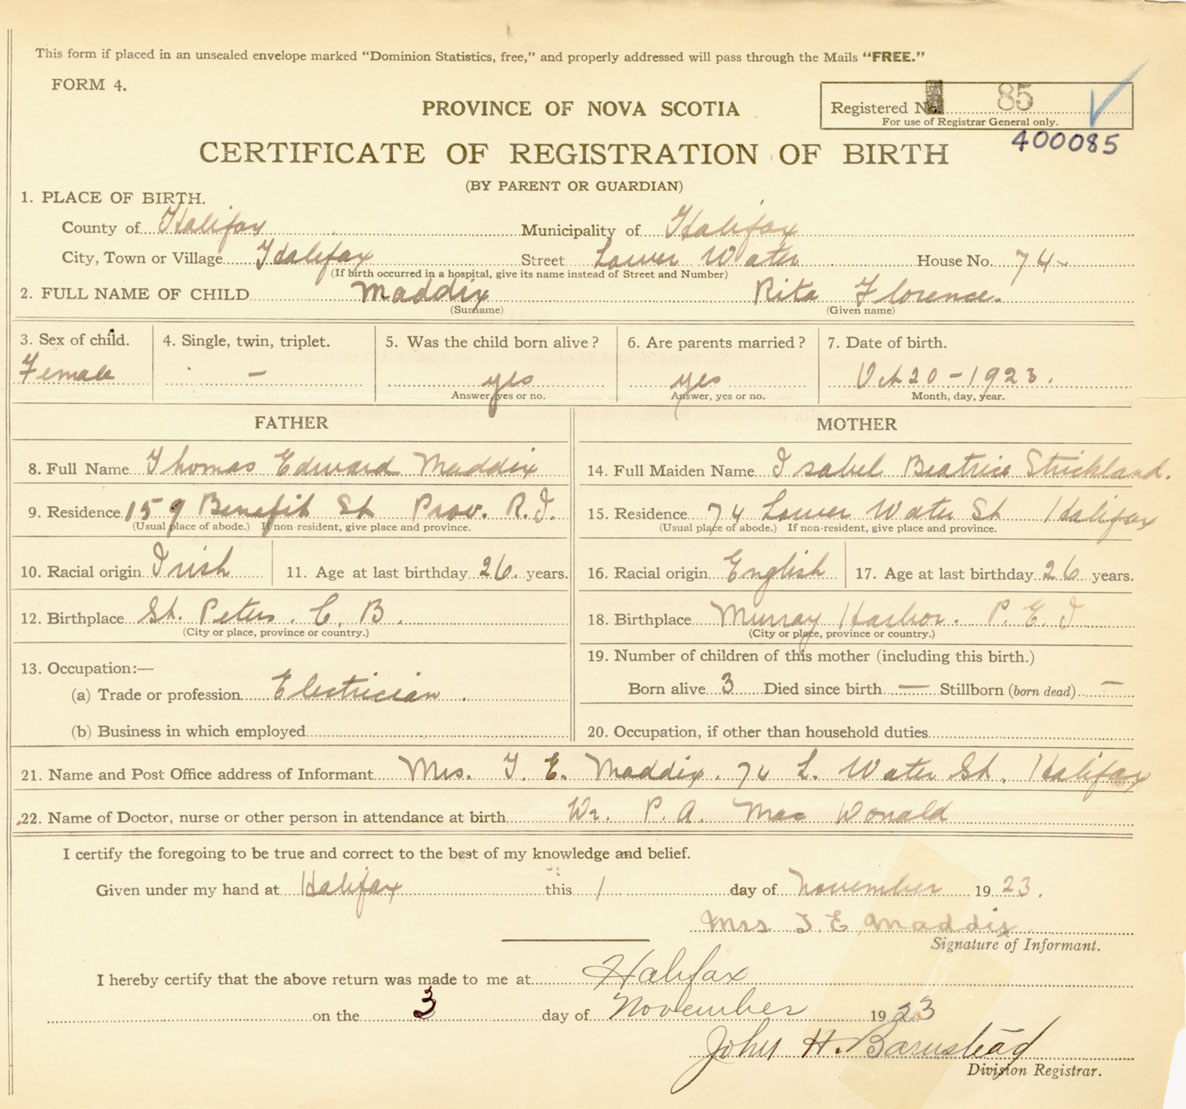 This form if placed in an unsealed envelope marked "Dominion Statistics, free," and properly addressed will pass through the Mails "FREE."
FORM 4.
Registered No. 85
For use of Registrar General only.
400085
PROVINCE OF NOVA SCOTIA
CERTIFICATE OF REGISTRATION OF BIRTH
(BY PARENT OR GUARDIAN)
1. PLACE OF BIRTH.
County of Halifax Municipality of Halifax
City, Town or Village Halifax Street Lower Water House No. 74
(If birth occurred in a hospital, give its name instead of Street and Number)
2. FULL NAME OF CHILD Maddix Rita Florence.
(Surname) (Given name)
3. Sex of child. 4. Single, twin, triplet. 5. Was the child born alive? 6. Are parents married? 7. Date of birth.
Female — yes yes Oct 20-1923.
Answer, yes or no. Answer, yes or no. Month, day, year.
FATHER
8. Full Name Thomas Edward Maddix
9. Residence 159 Benefit St Prov. R.I.
(Usual place of abode.) If non-resident, give place and province.
10. Racial origin Irish 11. Age at last birthday 26. years.
12. Birthplace St. Peters. C. B.
(City or place, province or country.)
13. Occupation:—
(a) Trade or profession Electrician.
(b) Business in which employed
MOTHER
14. Full Maiden Name Isabel Beatrice Strickland.
15. Residence 74 Lower Water St Halifax
(Usual place of abode.) If non-resident, give place and province.
16. Racial origin English 17. Age at last birthday 26 years.
18. Birthplace Murray Harbor. P. E. I
(City or place, province or country.)
19. Number of children of this mother (including this birth.)
Born alive 3 Died since birth — Stillborn (born dead) —
20. Occupation, if other than household duties
21. Name and Post Office address of Informant Mrs. T. E. Maddix. 74 L. Water St. Halifax
22. Name of Doctor, nurse or other person in attendance at birth Dr. P. A. Mac Donald
I certify the foregoing to be true and correct to the best of my knowledge and belief.
Given under my hand at Halifax this 1 day of November 1923.
Mrs T. E. Maddix
Signature of Informant.
I hereby certify that the above return was made to me at Halifax
on the 3 day of November 1923
John H. Barnstead
Division Registrar.